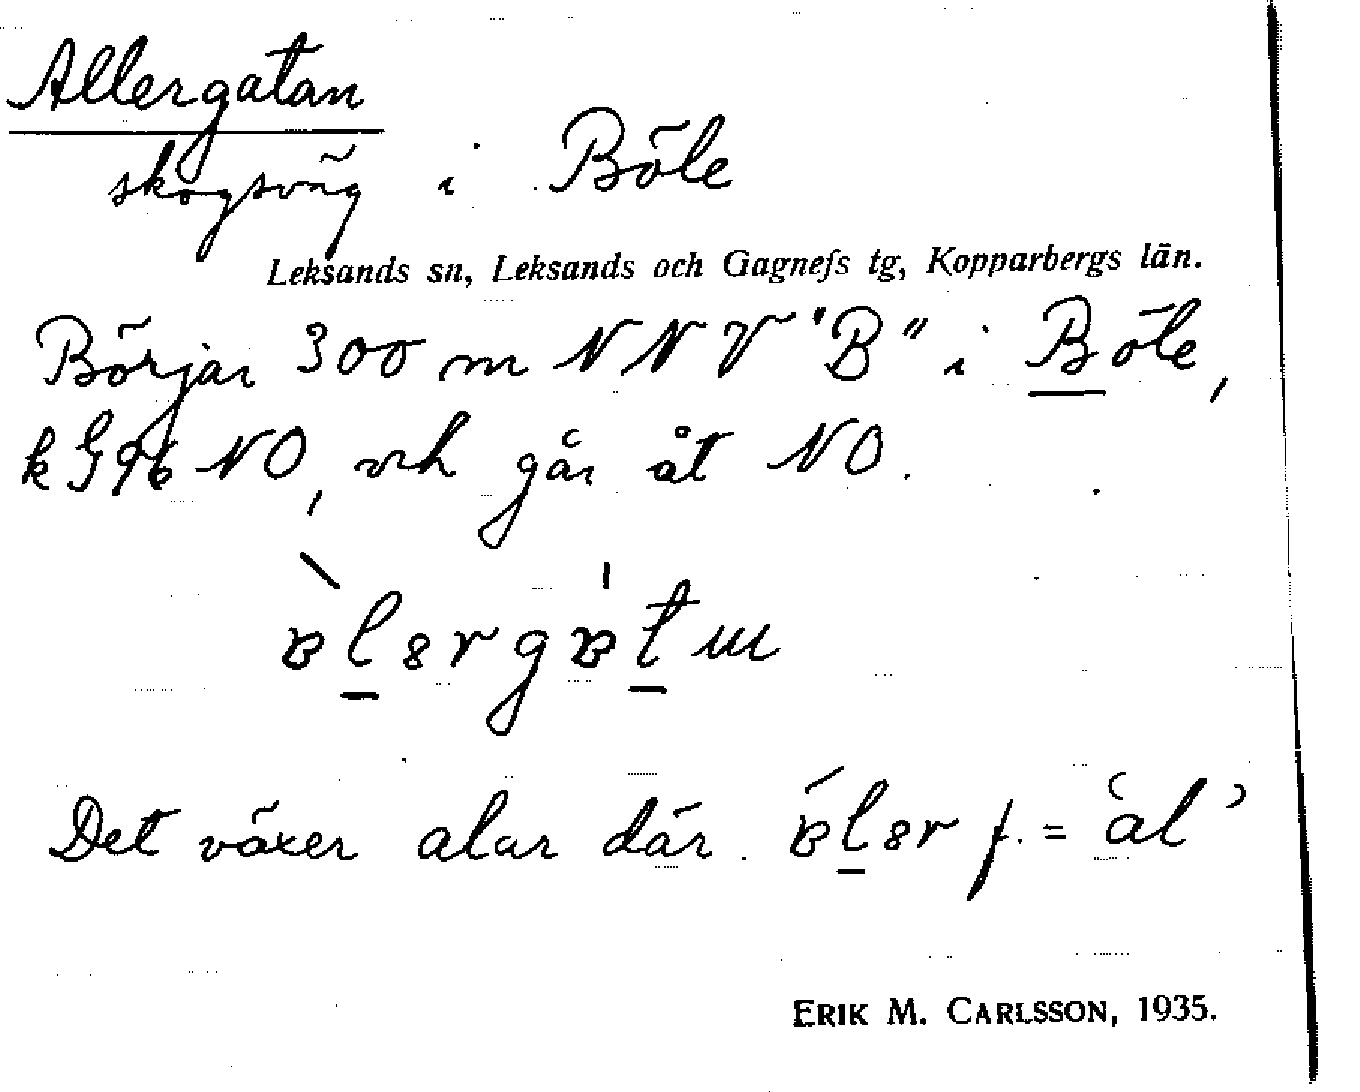 Allergatan
skogsväg i Böle
Leksands sn, Leksands och Gagnefs tg, Kopparbergs län.
Börjar 300 m NNV "B" i Böle,
k G 96 NO, och går åt NO.
Det växer alar där. f. = ʿal ʾ
ERIK M. CARLSSON, 1935.